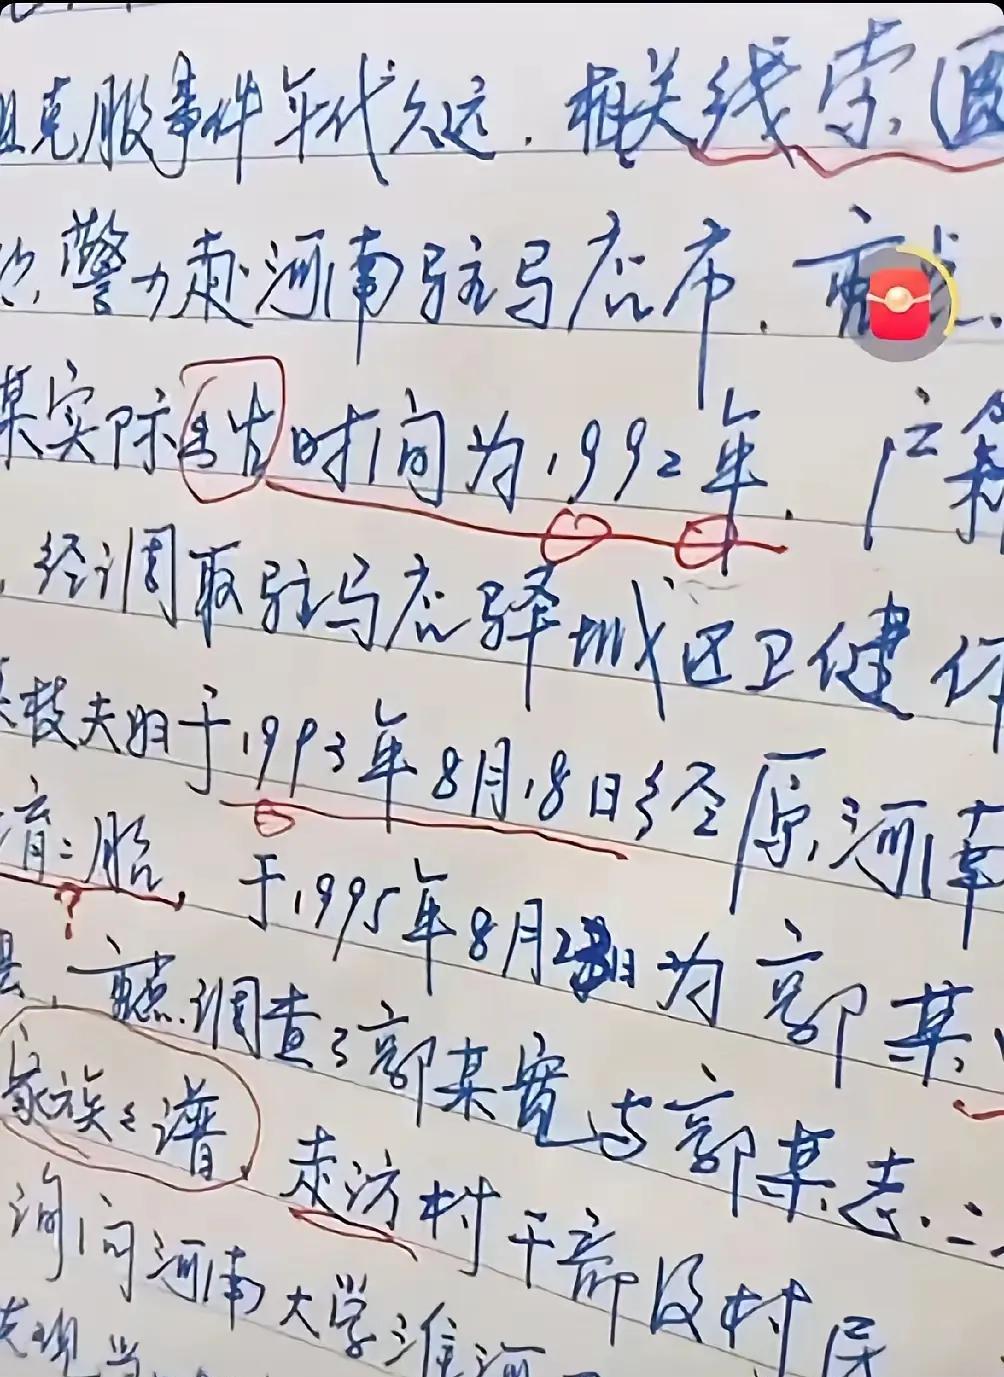 克服事件年代久远,相关线索(
警力赴河南驻马店市,
某实际出生时间为1992年,户籍
,经调取驻马店驿城区卫健
枝夫妇于1993年8月18日经原河南
育二胎,于1995年8月2 日为郭某
县,调查了郭某宽与郭某志,二
家族之谱,走访村干部及村民
询问河南大学淮河
发现当